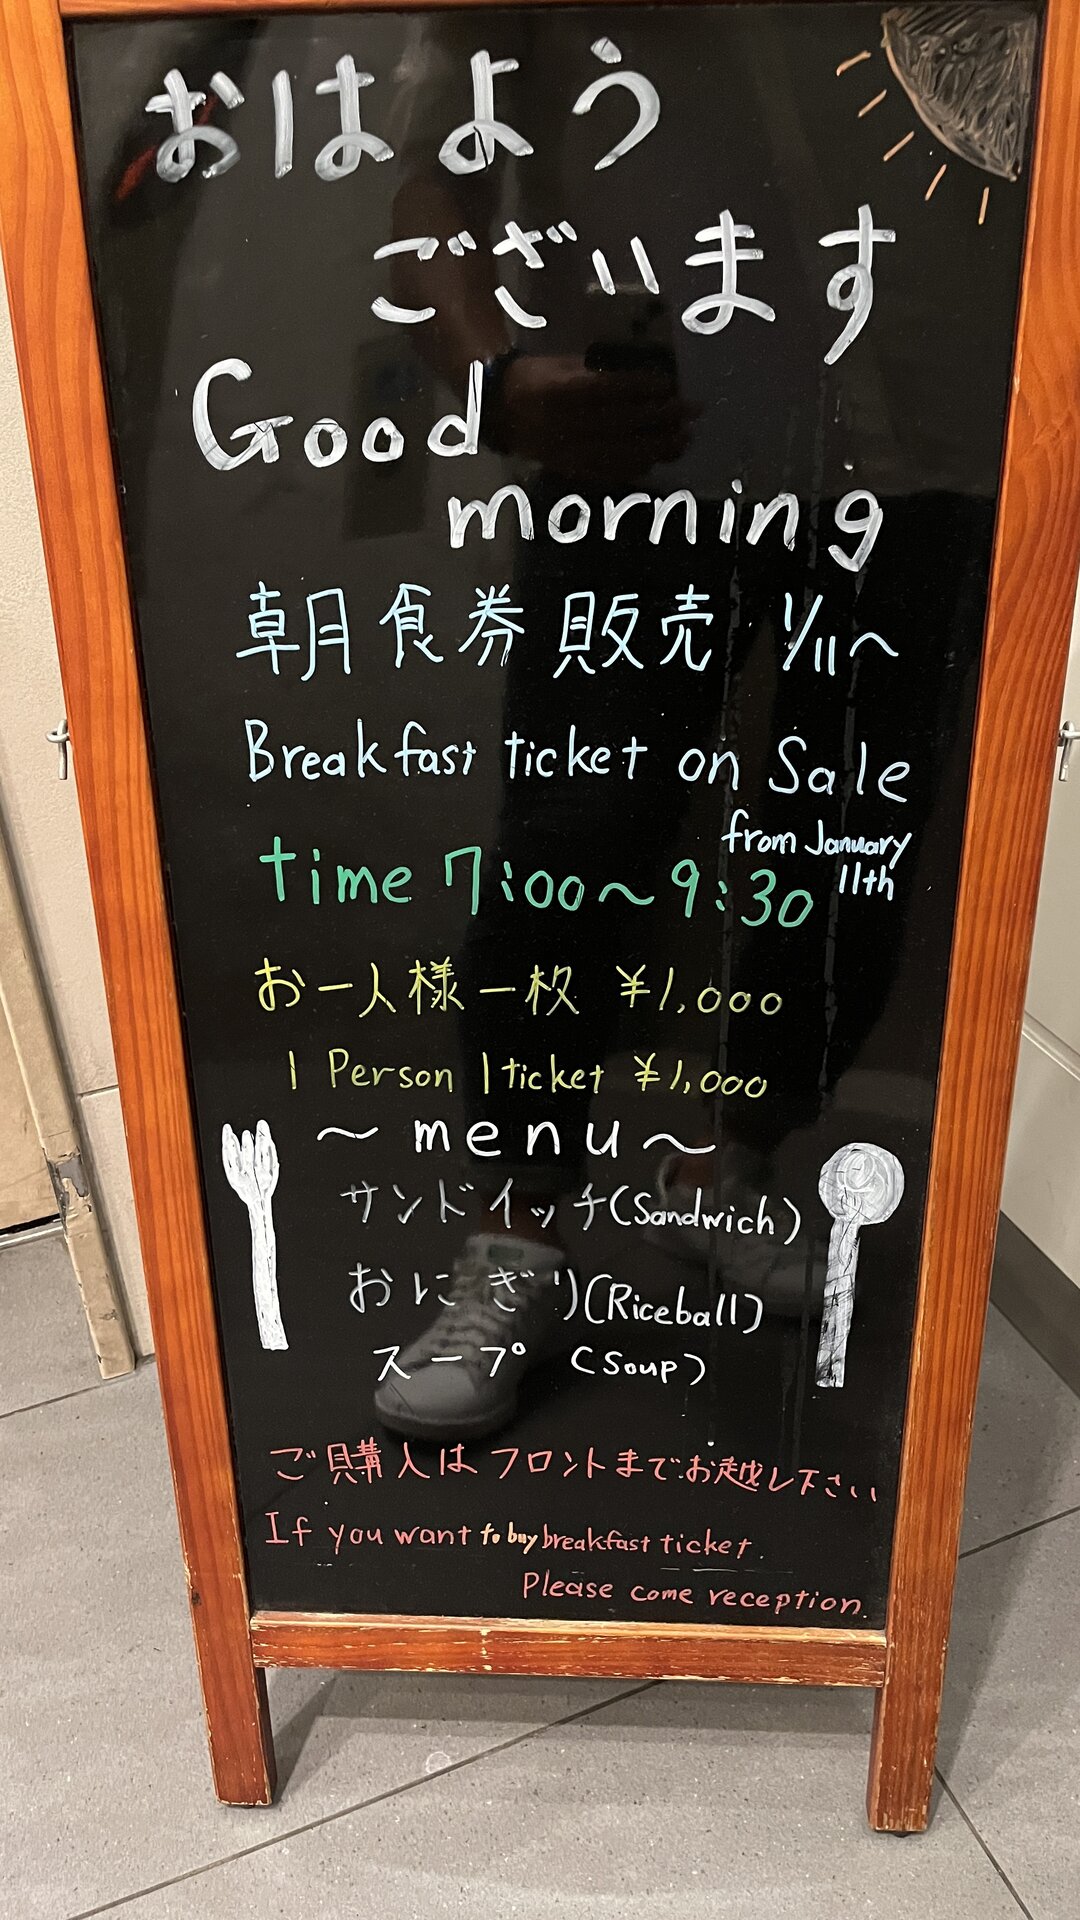 おはよう
ございます
Good
morning
朝食券販売 1/11〜
Breakfast ticket on Sale
from January
11th
time 7:00〜9:30
お一人様一枚 ¥1,000
1 Person 1 ticket ¥1,000
〜menu〜
サンドイッチ(Sandwich)
おにぎり(Riceball)
スープ (Soup)
ご購入はフロントまでお越し下さい
If you want to buy breakfast ticket.
Please come reception.